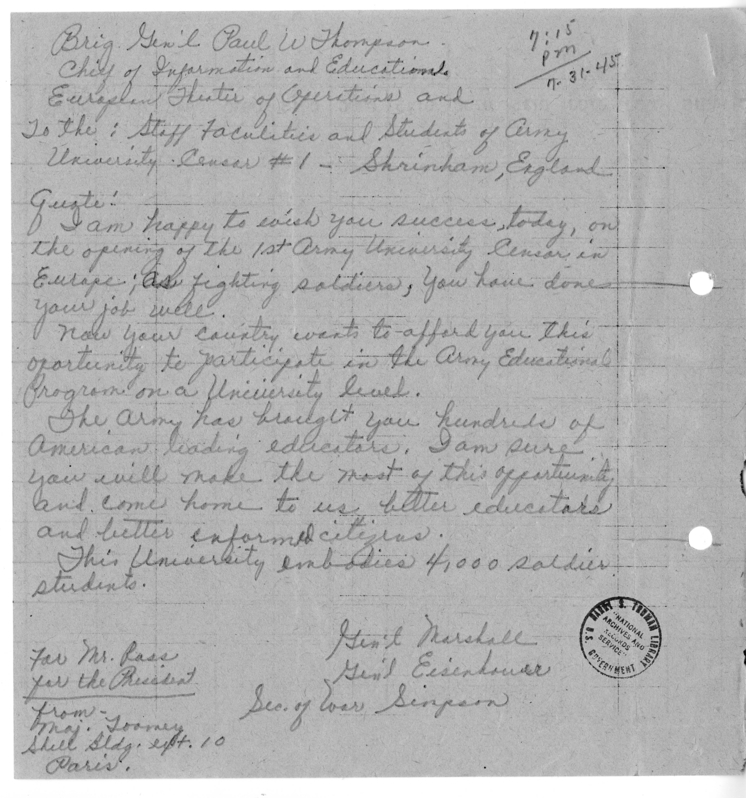 Brig. Gen'l Paul W Thompson.
Chief of Information and Educational.
European Theater of Operations and
7:15
pm
7-31-45
To the: Staff Faculities and Students of Army
University Censar #1 - Shrinham, England
Quote:
I am happy to wish you success, today, on
the opening of the 1st Army University Censar, in
Europe; as fighting soldiers, you have done
your job well.
Now your country wants to afford you this
oportunity to participate in the Army Educational
Program on a University level.
The Army has brought you hundreds of
American leading educators. I am sure
you will make the most of this opportunity
and come home to us better educators
and better informed citizens.
This University embodies 4,000 soldier
students.
Gen'l Marshall
Gen'l Eisenhower
Sec. of War Simpson
For Mr. Ross
for the President
from -
Maj. Toomey
Shell Bldg. ext. 10
Paris.
HARRY S. TRUMAN LIBRARY
"NATIONAL
ARCHIVES AND
RECORDS
SERVICE"
U.S. GOVERNMENT